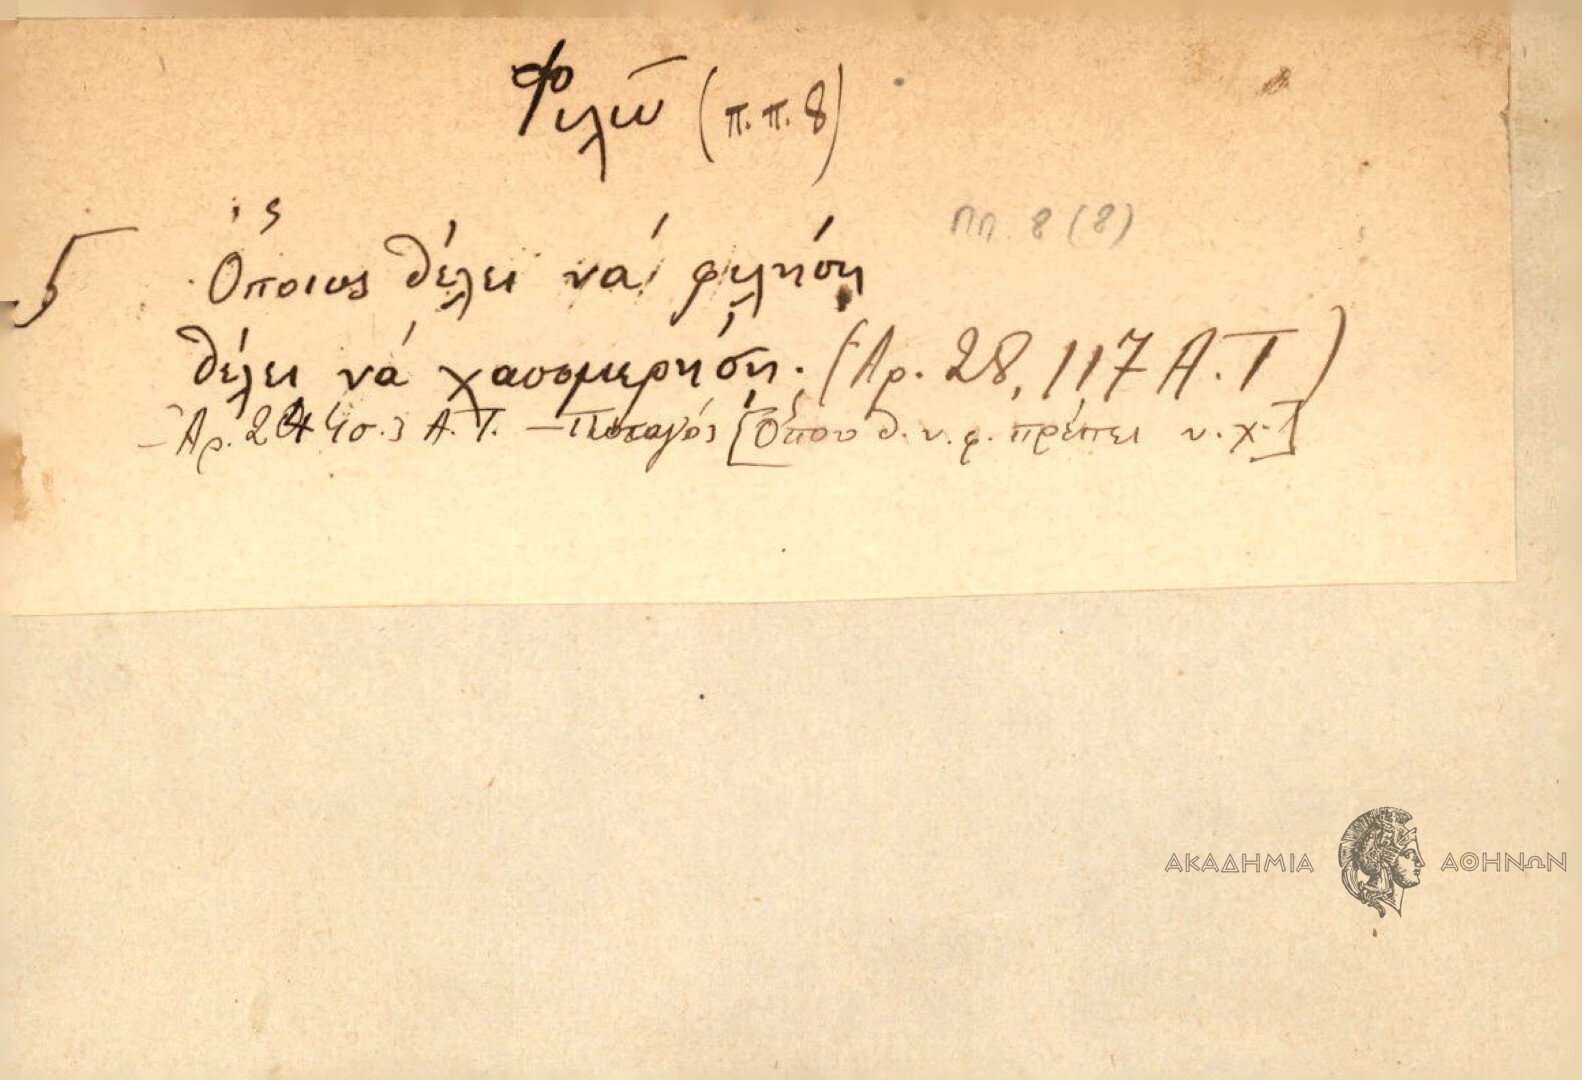 Φιλῶ (π.π. 8)
ΠΠ. 8 (8)
5 Ὅποιος θέλει νά φιλήσῃ
θέλει νά χασομερήσῃ. (Ἀρ. 28, 117 Α.Τ)
– Ἀρ. Α.Τ. – [Ὅπου θ. ν. φ. πρέπει ν. χ.]
ΑΚΑΔΗΜΙΑ ΑΘΗΝΩΝ